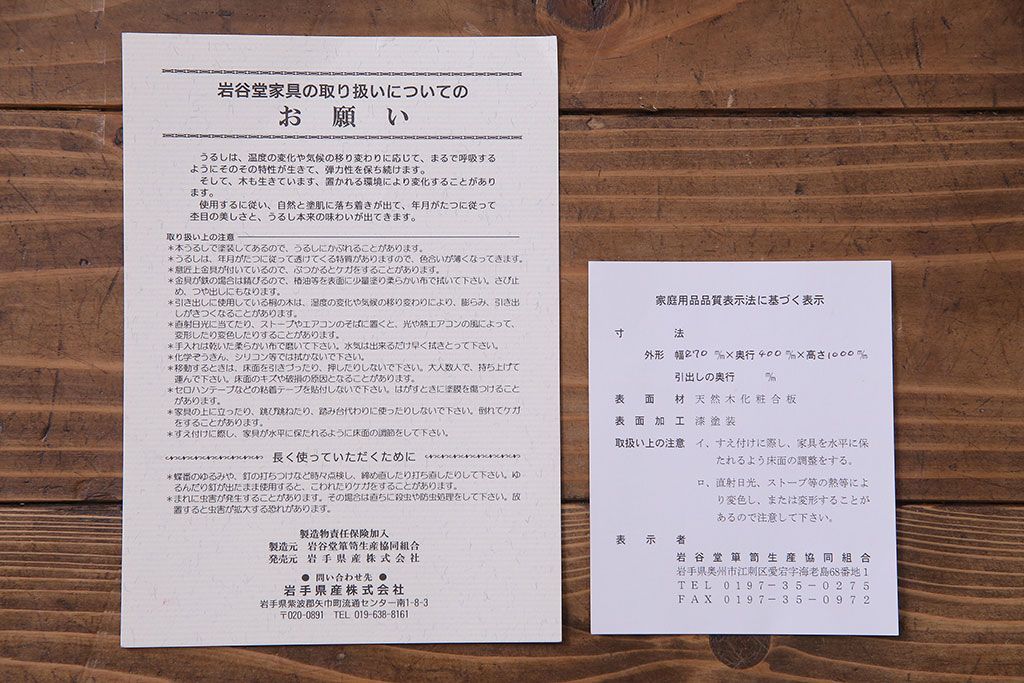 岩谷堂家具の取り扱いについての
お願い
うるしは、温度の変化や気候の移り変わりに応じて、まるで呼吸する
ようにそのその特性が生きて、弾力性を保ち続けます。
そして、木も生きています、置かれる環境により変化することがあり
ます。
使用するに従い、自然と塗肌に落ち着きが出て、年月がたつに従って
杢目の美しさと、うるし本来の味わいが出てきます。
取り扱い上の注意
＊本うるしで塗装してあるので、うるしにかぶれることがあります。
＊うるしは、年月がたつに従って透けてくる特質がありますので、色合いが薄くなってきます。
＊意匠上金具が付いているので、ぶつかるとケガをすることがあります。
＊金具が鉄の場合は錆びるので、椿油等を表面に少量塗り柔らかい布で拭いて下さい。さび止
め、つや出しにもなります。
＊引き出しに使用している桐の木は、湿度の変化や気候の移り変わりにより、膨らみ、引き出
しがきつくなることがあります。
＊直射日光に当てたり、ストーブやエアコンのそばに置くと、光や熱エアコンの風によって、
変形したり変色したりすることがあります。
＊手入れは乾いた柔らかい布で磨いて下さい。水気は出来るだけ早く拭きとって下さい。
＊化学ぞうきん、シリコン等では拭かないで下さい。
＊移動するときは、床面を引きづったり、押したりしないで下さい。大人数人で、持ち上げて
運んで下さい。床面のキズや破損の原因となることがあります。
＊セロハンテープなどの粘着テープを貼付しないで下さい。はがすときに塗膜を傷つけること
があります。
＊家具の上に立ったり、跳び跳ねたり、踏み台代わりに使ったりしないで下さい。倒れてケガ
をすることがあります。
＊すえ付けに際し、家具が水平に保たれるように床面の調節をして下さい。
長く使っていただくために
＊蝶番のゆるみや、釘の打ちつけなど時々点検し、締め直したり打ち直したりして下さい。ゆ
るんだり釘が出たまま使用すると、こわれたりケガをすることがあります。
＊まれに虫害が発生することがあります。その場合は直ちに殺虫や防虫処理をして下さい。放
置すると虫害が拡大する恐れがあります。
製造物責任保険加入
製造元 岩谷堂箪笥生産協同組合
発売元 岩手県産株式会社
● 問い合わせ先 ●
岩手県産株式会社
岩手県紫波郡矢巾町流通センター南1-8-3
〒020-0891 TEL 019-638-8161
家庭用品品質表示法に基づく表示
寸法
外形 幅270㎜×奥行400㎜×高さ1000㎜
引出しの奥行 ㎜
表面材 天然木化粧合板
表面加工 漆塗装
取扱い上の注意 イ、すえ付けに際し、家具を水平に保
たれるよう床面の調整をする。
ロ、直射日光、ストーブ等の熱等によ
り変色し、または変形することが
あるので注意して下さい。
表示者
岩谷堂箪笥生産協同組合
岩手県奥州市江刺区愛宕字海老島68番地1
TEL 0197-35-0275
FAX 0197-35-0972